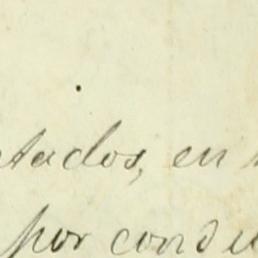 tados, en
por condu